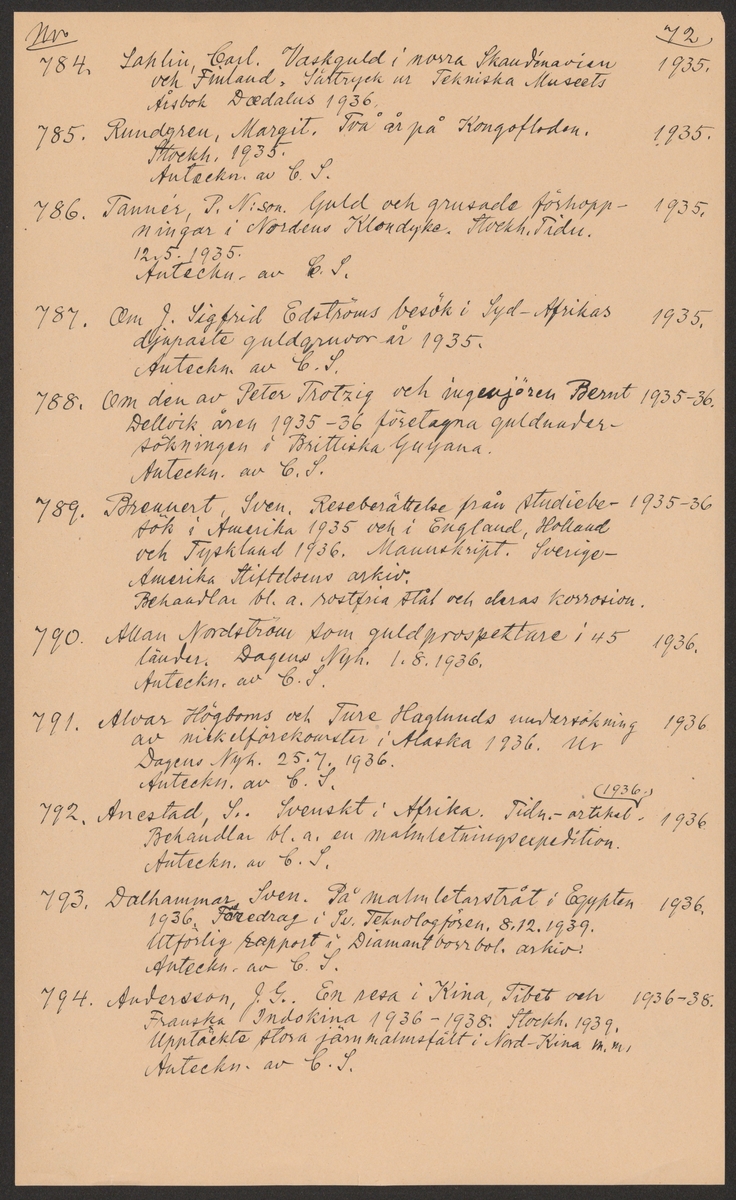 Nro 72
784. Sahlin, Carl. Vaskguld i norra Skandinavien 1935.
och Finland. Särtryck ur Tekniska Museets
Årsbok Dædalus 1936.
785. Rundgren, Margit. Två år på Kongofloden. 1935.
Stockh. 1935.
Anteckn. av C. S.
786. Tannér, P. N:son. Guld och grusade förhopp- 1935.
ningar i Nordens Klondyke. Stockh. Tidn.
12.5. 1935.
Anteckn. av C. S.
787. Om J. Sigfrid Edströms besök i Syd-Afrikas 1935.
djupaste guldgruvor år 1935.
Anteckn. av C. S.
788. Om den av Peter Trotzig och ingenjören Bernt 1935-36.
Dellvik åren 1935-36 företagna guldunder-
sökningen i Brittiska Guyana.
Anteckn. av C. S.
789. Brennert, Sven. Reseberättelse från studiebe- 1935-36
sök i Amerika 1935 och i England, Holland
och Tyskland 1936. Manuskript. Sverige-
Amerika Stiftelsens arkiv.
Behandlar bl. a. rostfria stål och deras korrosion.
790. Allan Nordström som guldprospektare i 45 1936.
länder. Dagens Nyh. 1.8.1936.
Anteckn. av C. S.
791. Alvar Högboms och Ture Haglunds undersökning 1936
av nickelförekomster i Alaska 1936. Ur
Dagens Nyh. 25.7. 1936.
Anteckn. av C. S.
(1936.)
792. Anestad, S.. Svenskt i Afrika. Tidn.-artikel. 1936
Behandlar bl. a. en malmletningsexpedition.
Anteckn. av C. S.
793. Dalhammar, Sven. På malmletarstråt i Egypten 1936.
1936. Föredrag i Sv. Teknologfören. 8.12.1939.
Utförlig rapport i Diamantborrbol. arkiv.
Anteckn. av C. S.
794. Andersson, J. G.. En resa i Kina, Tibet och 1936-38.
Franska Indokina 1936-1938. Stockh. 1939.
Upptäckte stora järnmalmsfält i Nord-Kina m. m.
Anteckn. av C. S.